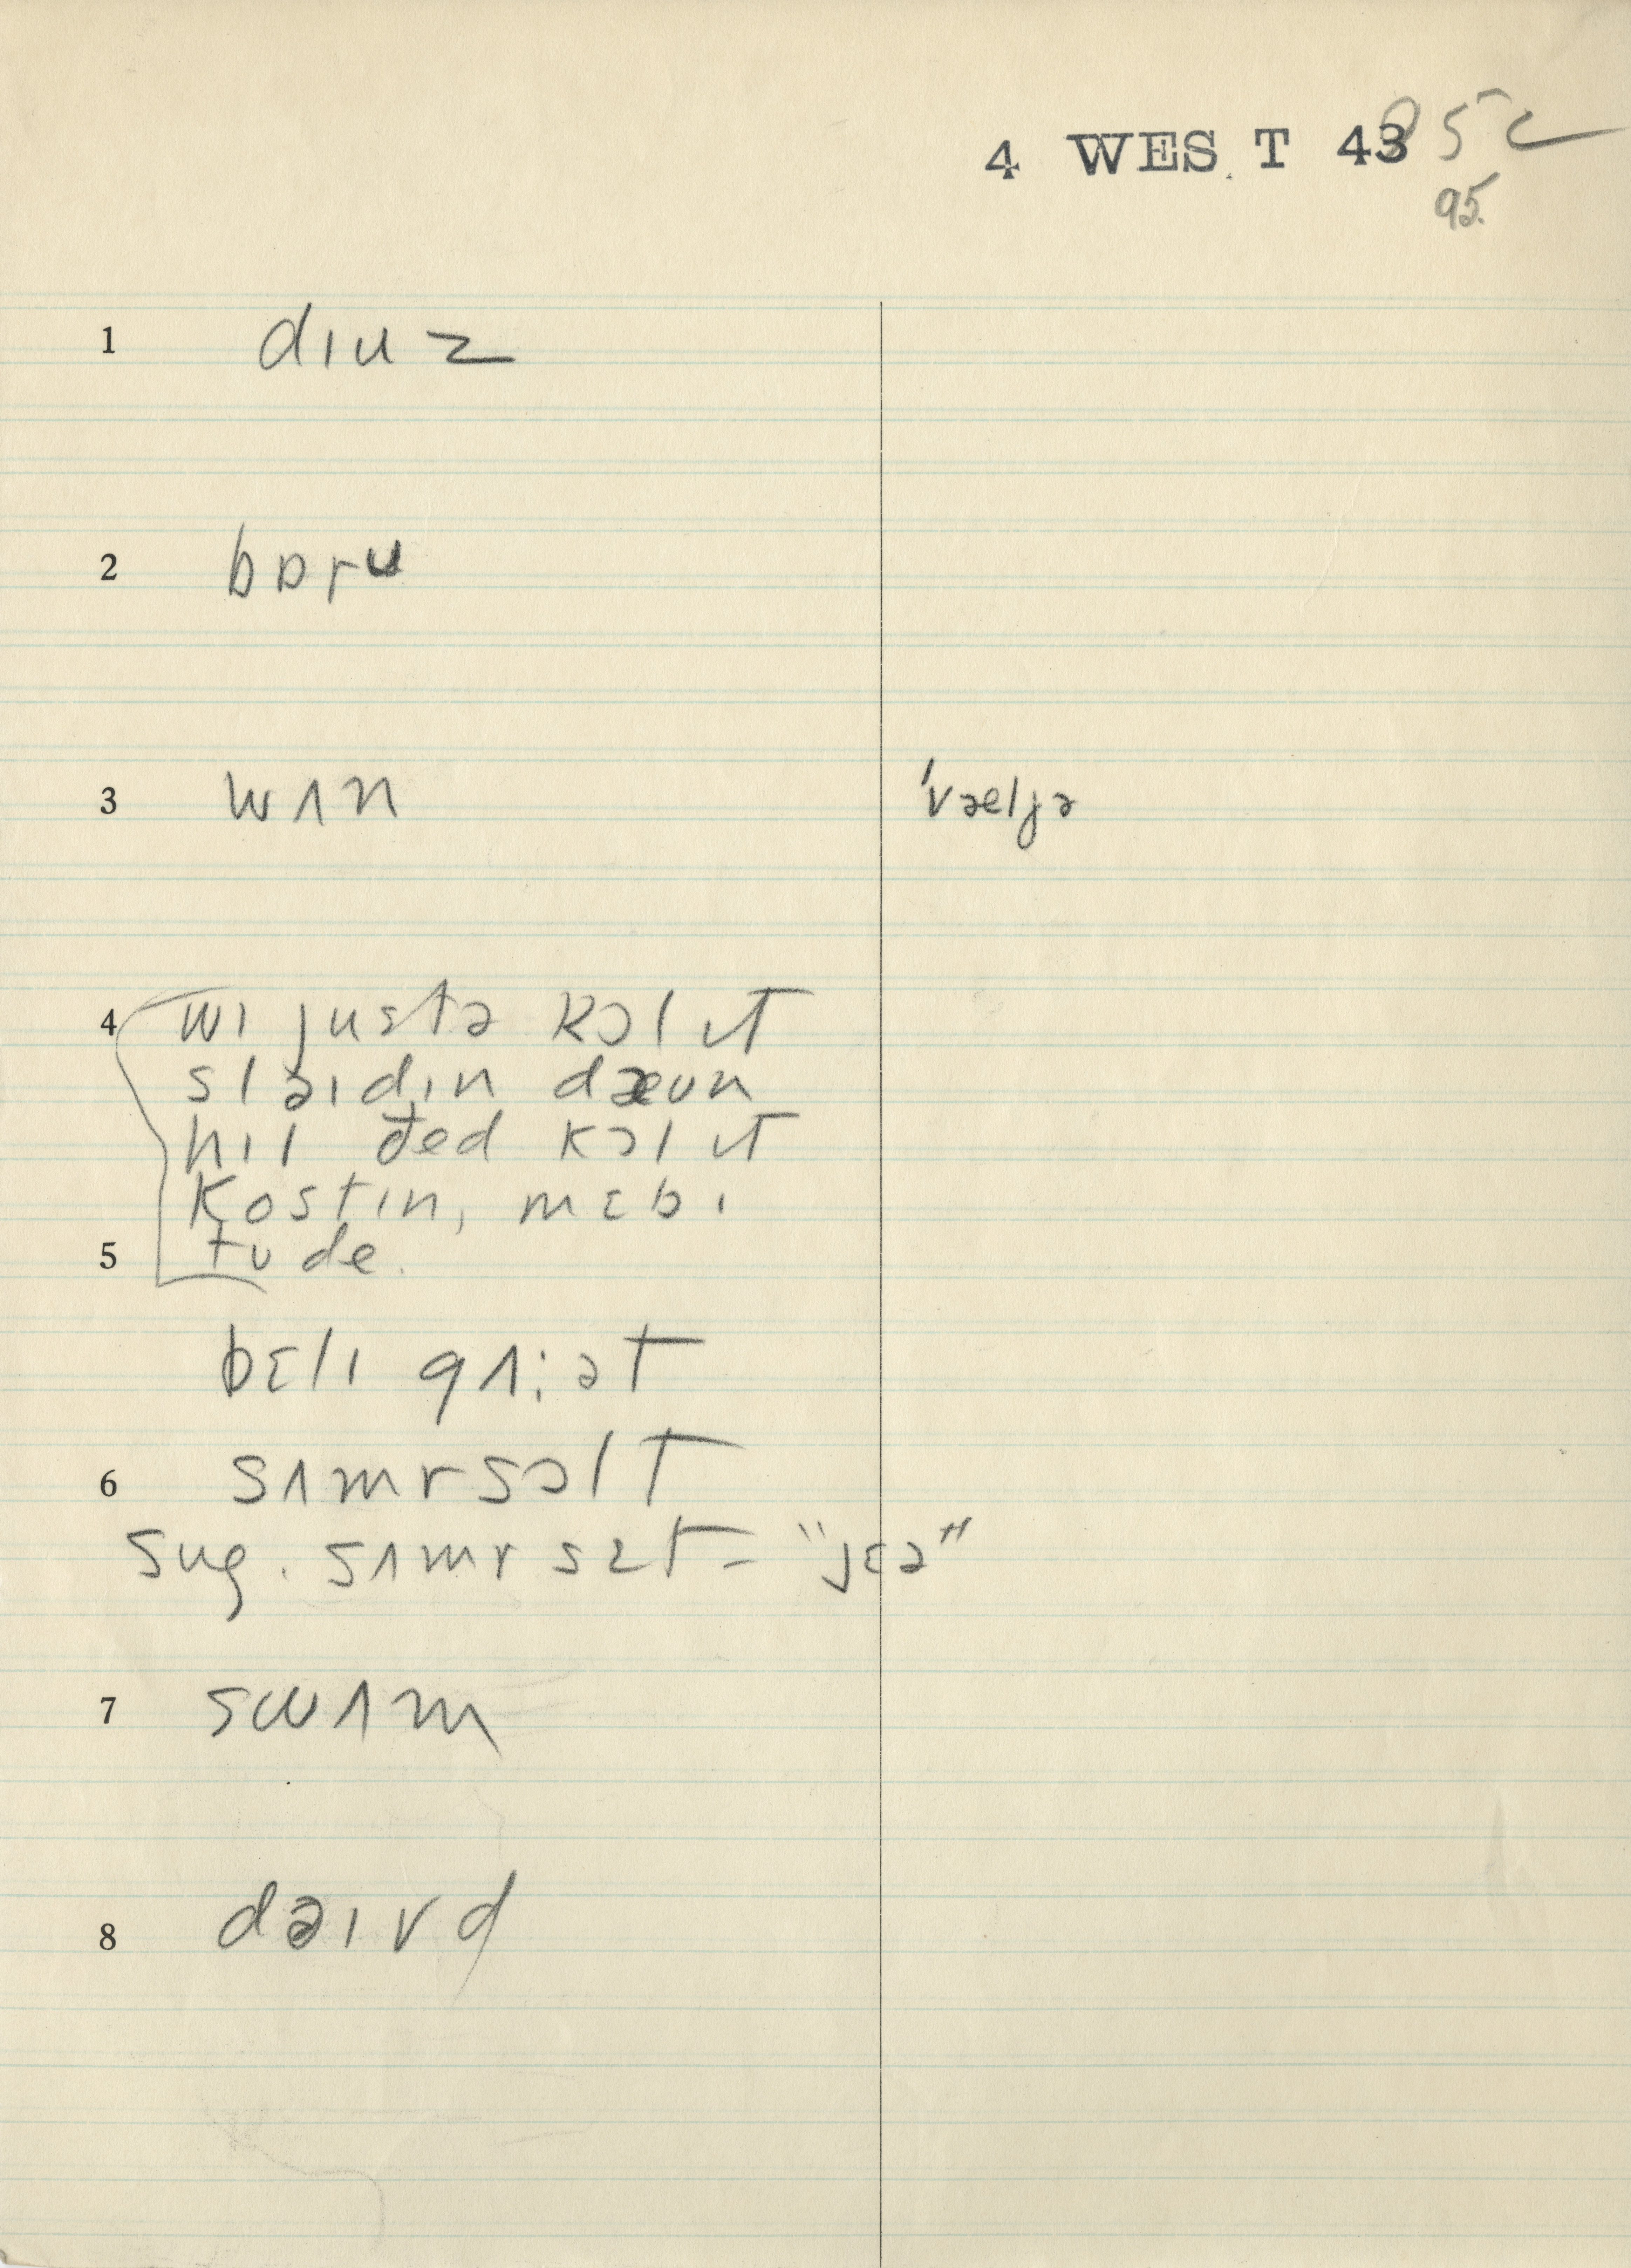 4 WEST 43 85c
95.
1 dɪuz
2 bɒru
3 wʌn 'vaeljə
4 wɪ justə kɔl ɪt
slaɪdɪn daeun
hɪl ðed kɔl ɪt
kostɪn, mɛbɪ
5 tude.
bɛlɪ gʌ:ət
6 sʌmrsɔlt
sug. sʌmrsɛt = "jɛə"
7 swʌm
8 daɪvd